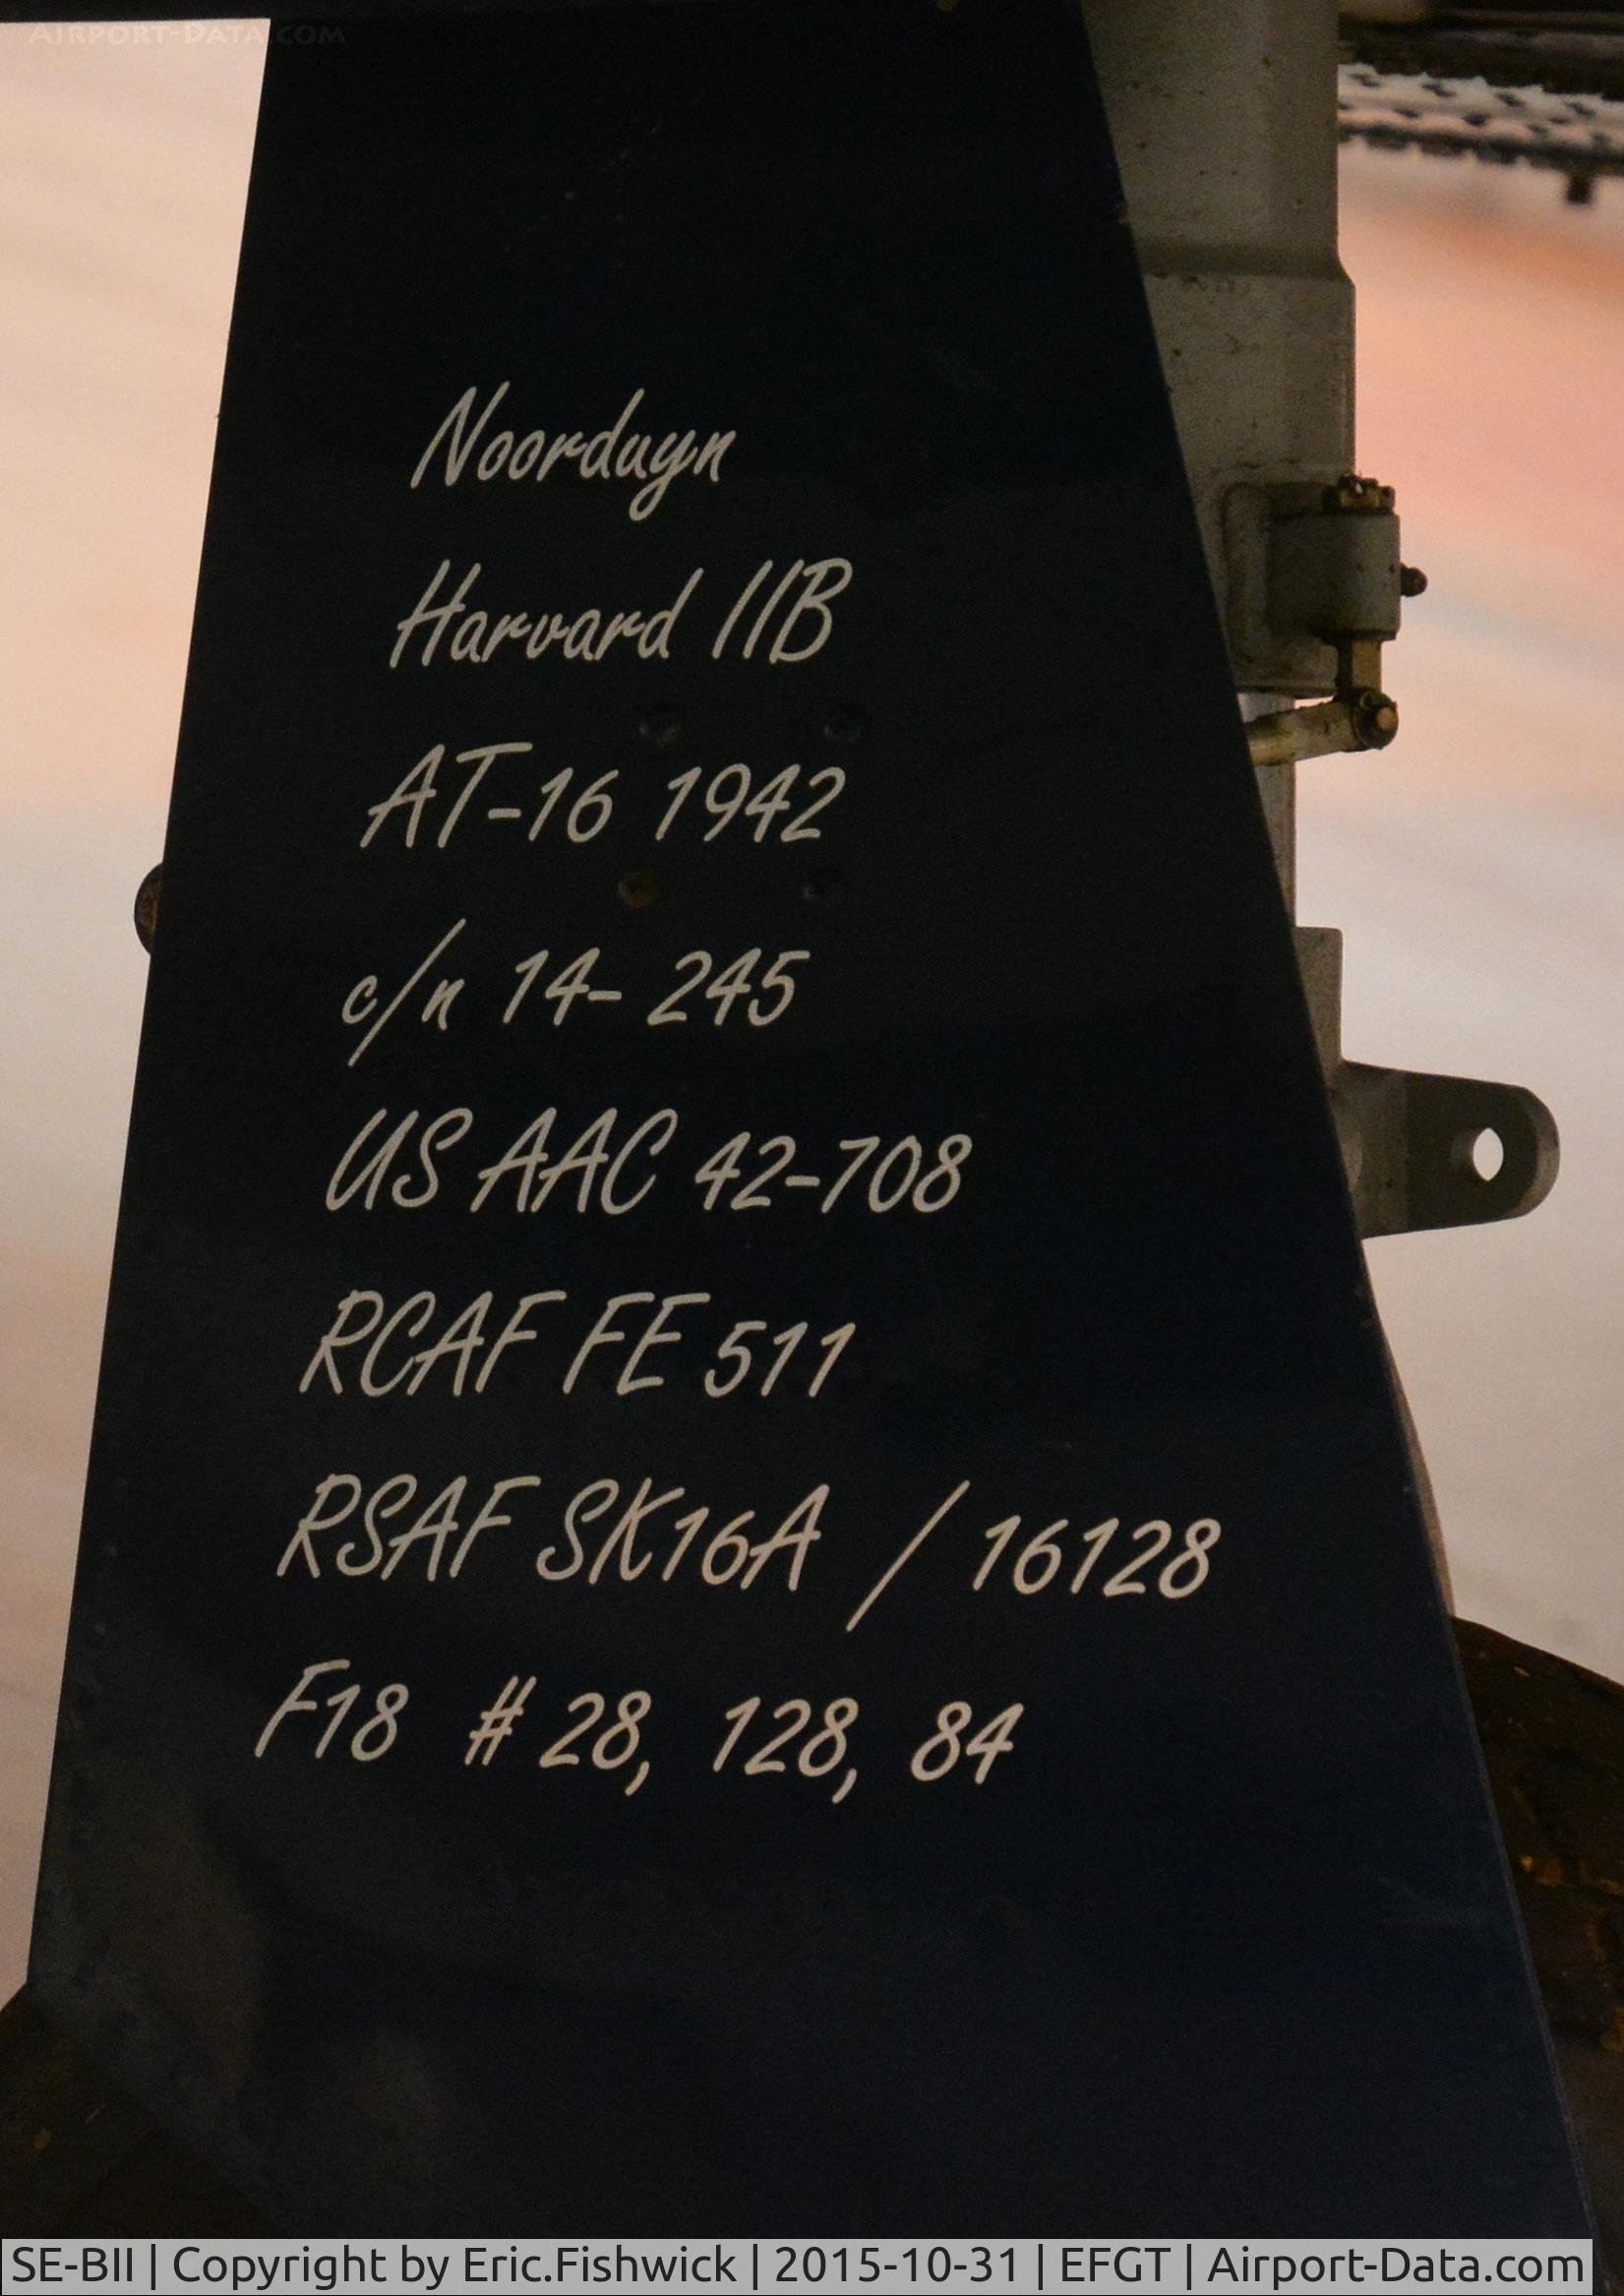 AIRPORT-DATA.COM
Noorduyn
Harvard IIB
AT-16 1942
c/n 14- 245
US AAC 42-708
RCAF FE 511
RSAF SK16A / 16128
F18 # 28, 128, 84
SE-BII | Copyright by Eric.Fishwick | 2015-10-31 | EFGT | Airport-Data.com